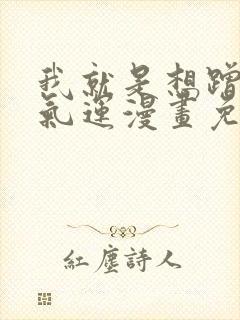 我就是想蹭
氣運漫畫免
紅塵詩人